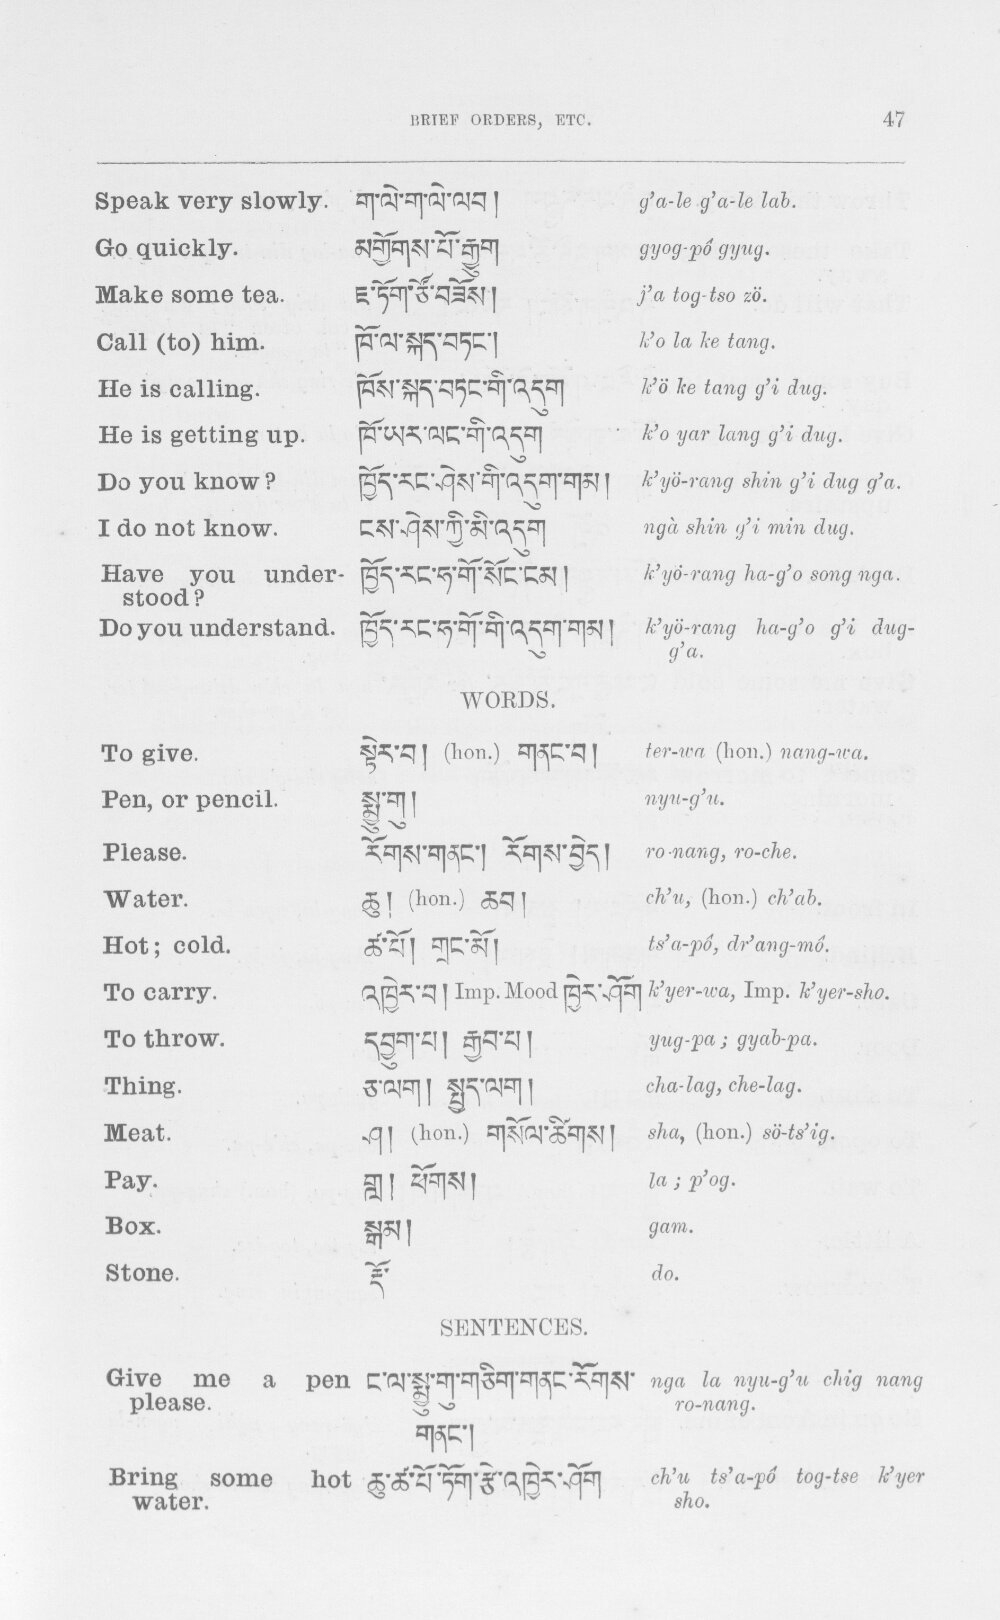 BRIEF ORDERS, ETC. 47
Speak very slowly. ག་ལེ་ག་ལེ་ལབ། g'a-le g'a-le lab.
Go quickly. མགྱོགས་པོ་རྒྱུག gyog-pó gyug.
Make some tea. ཇ་ཏོག་ཙོ་བཟོས། j'a tog-tso zö.
Call (to) him. ཁོ་ལ་སྐད་བཏང་། k'o la ke tang.
He is calling. ཁོས་སྐད་བཏང་གི་འདུག k'ö ke tang g'i dug.
He is getting up. ཁོ་ཡར་ལང་གི་འདུག k'o yar lang g'i dug.
Do you know? ཁྱོད་རང་ཤེས་གི་འདུག་གམ། k'yö-rang shin g'i dug g'a.
I do not know. ངས་ཤེས་ཀྱི་མི་འདུག ngà shin g'i min dug.
Have you under- ཁྱོད་རང་ཧ་གོ་སོང་ངམ། k'yö-rang ha-g'o song nga.
stood?
Do you understand. ཁྱོད་རང་ཧ་གོ་གི་འདུག་གམ། k'yö-rang ha-g'o g'i dug-
g'a.
WORDS.
To give. སྟེར་བ། (hon.) གནང་བ། ter-wa (hon.) nang-wa.
Pen, or pencil. སྨྱུ་གུ། nyu-g'u.
Please. རོགས་གནང་། རོགས་བྱེད། ro-nang, ro-che.
Water. ཆུ། (hon.) ཆབ། ch'u, (hon.) ch'ab.
Hot; cold. ཚ་པོ། གྲང་མོ། ts'a-pó, dr'ang-mó.
To carry. འཁྱེར་བ། Imp. Mood ཁྱེར་ཤོག k'yer-wa, Imp. k'yer-sho.
To throw. དབྱུག་པ། རྒྱབ་པ། yug-pa; gyab-pa.
Thing. ཅ་ལག། སྤྱད་ལག། cha-lag, che-lag.
Meat. ཤ། (hon.) གསོལ་ཚིགས། sha, (hon.) sö-ts'ig.
Pay. གླ། ཕོགས། la; p'og.
Box. སྒམ། gam.
Stone. རྡོ་ do.
SENTENCES.
Give me a pen ང་ལ་སྨྱུ་གུ་གཅིག་གནང་རོགས་ nga la nyu-g'u chig nang
please. ro-nang.
གནང་།
Bring some hot ཆུ་ཚ་པོ་ཏོག་རྩེ་འཁྱེར་ཤོག ch'u ts'a-pó tog-tse k'yer
water. sho.